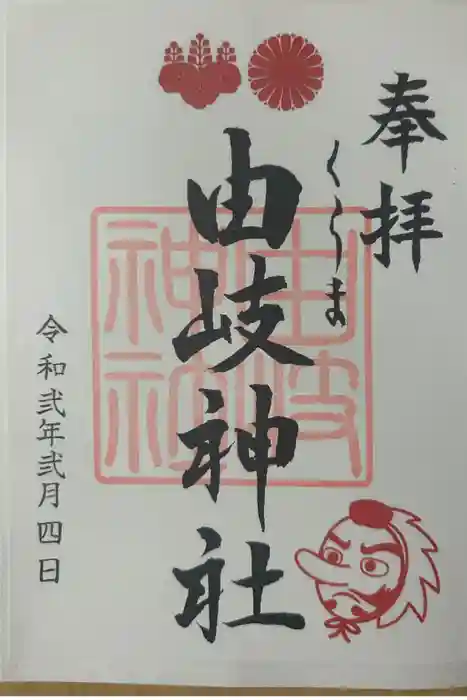 奉拝
くらま
由岐神社
由岐神社
令和弐年弐月四日